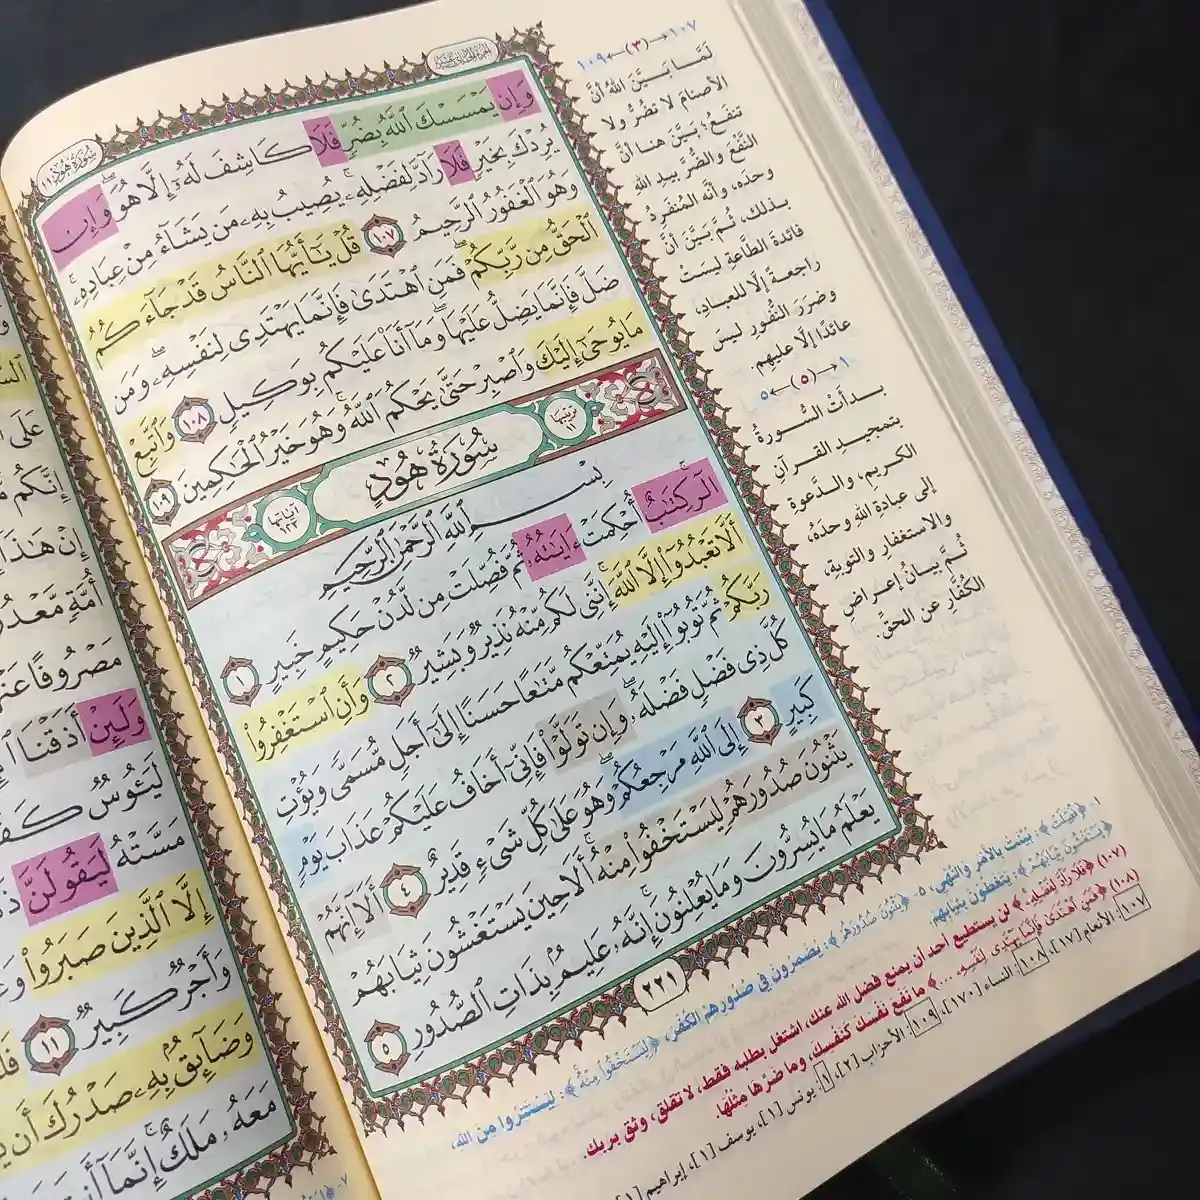 الجزء الحادي عشر
سورة هود ١١
وَإِن يَمْسَسْكَ ٱللَّهُ بِضُرٍّ فَلَا كَاشِفَ لَهُۥٓ إِلَّا هُوَ ۖ وَإِن
يُرِدْكَ بِخَيْرٍ فَلَا رَآدَّ لِفَضْلِهِۦ ۚ يُصِيبُ بِهِۦ مَن يَشَآءُ مِنْ عِبَادِهِۦ ۚ
وَهُوَ ٱلْغَفُورُ ٱلرَّحِيمُ ١٠٧ قُلْ يَـٰٓأَيُّهَا ٱلنَّاسُ قَدْ جَآءَكُمُ
ٱلْحَقُّ مِن رَّبِّكُمْ ۖ فَمَنِ ٱهْتَدَىٰ فَإِنَّمَا يَهْتَدِى لِنَفْسِهِۦ ۖ وَمَن
ضَلَّ فَإِنَّمَا يَضِلُّ عَلَيْهَا ۖ وَمَآ أَنَا۠ عَلَيْكُم بِوَكِيلٍ ١٠٨ وَٱتَّبِعْ
مَا يُوحَىٰٓ إِلَيْكَ وَٱصْبِرْ حَتَّىٰ يَحْكُمَ ٱللَّهُ ۚ وَهُوَ خَيْرُ ٱلْحَـٰكِمِينَ ١٠٩
ترتيبها ١١ سُورَةُ هُودٍ آياتها ١٢٣
بِسْمِ ٱللَّهِ ٱلرَّحْمَـٰنِ ٱلرَّحِيمِ
الٓر ۚ كِتَـٰبٌ أُحْكِمَتْ ءَايَـٰتُهُۥ ثُمَّ فُصِّلَتْ مِن لَّدُنْ حَكِيمٍ خَبِيرٍ ١
أَلَّا تَعْبُدُوٓا۟ إِلَّا ٱللَّهَ ۚ إِنَّنِى لَكُم مِّنْهُ نَذِيرٌ وَبَشِيرٌ ٢ وَأَنِ ٱسْتَغْفِرُوا۟
رَبَّكُمْ ثُمَّ تُوبُوٓا۟ إِلَيْهِ يُمَتِّعْكُم مَّتَـٰعًا حَسَنًا إِلَىٰٓ أَجَلٍ مُّسَمًّى وَيُؤْتِ
كُلَّ ذِى فَضْلٍ فَضْلَهُۥ ۖ وَإِن تَوَلَّوْا۟ فَإِنِّىٓ أَخَافُ عَلَيْكُمْ عَذَابَ يَوْمٍ
كَبِيرٍ ٣ إِلَى ٱللَّهِ مَرْجِعُكُمْ ۖ وَهُوَ عَلَىٰ كُلِّ شَىْءٍ قَدِيرٌ ٤ أَلَآ إِنَّهُمْ
يَثْنُونَ صُدُورَهُمْ لِيَسْتَخْفُوا۟ مِنْهُ ۚ أَلَا حِينَ يَسْتَغْشُونَ ثِيَابَهُمْ
يَعْلَمُ مَا يُسِرُّونَ وَمَا يُعْلِنُونَ ۚ إِنَّهُۥ عَلِيمٌۢ بِذَاتِ ٱلصُّدُورِ ٥
٢٢١
١٠٧←(٣)←١٠٩
لَمَّا بَيَّنَ اللهُ أنَّ
الأصنامَ لا تضُرُّ ولا
تنفعُ؛ بَيَّنَ هنا أنَّ
النَّفعَ والضُّرَّ بيدِ اللهِ
وحدَه، وأنَّه المُتفرِّدُ
بذلك، ثُمَّ بَيَّنَ أنَّ
فائدةَ الطاعةِ ليستْ
راجعةً إلَّا للعبادِ،
وضررَ النُّفورِ ليسَ
عائدًا إلَّا عليهِم.
١←(٥)←٥
بدأتْ السُّورةُ
بتمجيدِ القرآنِ
الكريمِ، والدَّعوةِ
إلى عبادةِ اللهِ وحدَهُ،
والاستغفارِ والتوبةِ،
ثُمَّ بيانُ إعراضِ
الكُفَّارِ عن الحقِّ.
١- ﴿فُصِّلَتْ﴾: بُيِّنَت بالأمْرِ والنَّهيِ، ٥- ﴿يَثْنُونَ صُدُورَهُمْ﴾: يُضمِرُونَ فِي صُدُورِهِم الكُفْرَ، ﴿لِيَسْتَخْفُوا مِنْهُ﴾: لِيَسْتَتِرُوا مِن اللهِ،
﴿يَسْتَغْشُونَ ثِيَابَهُمْ﴾: يَتَغَطَّونَ بِثِيَابِهِم.
(١٠٧) ﴿فَلَا رَآدَّ لِفَضْلِهِ﴾ لن يستطيع أحد أن يمنع فضل الله عنك، اشتغل بطلبه فقط، لا تقلق، وثق بربك.
(١٠٨) ﴿فَمَنِ اهْتَدَىٰ فَإِنَّمَا يَهْتَدِي لِنَفْسِهِ ...﴾ ما نفَعَ نفسَك كنَفْسِك، وما ضرَّها مِثلُها.
١٠٧: الأنعام [١٧]، ١٠٨: النساء [١٧٠]، ١٠٩: الأحزاب [٢]، ١: يونس [١]، يوسف [١]، إبراهيم [١]
عَلَى
مَّعْدُ
مَصْرُوفًا
وَلَئِنْ أَذَقْنَا
مَسَّتْهُ لَيَقُولَنَّ
إِلَّا ٱلَّذِينَ صَبَرُوا۟
وَأَجْرٌ كَبِيرٌ ١١
وَضَآئِقٌۢ بِهِۦ صَدْرُكَ أَن
مَعَهُۥ مَلَكٌ ۚ إِنَّمَآ